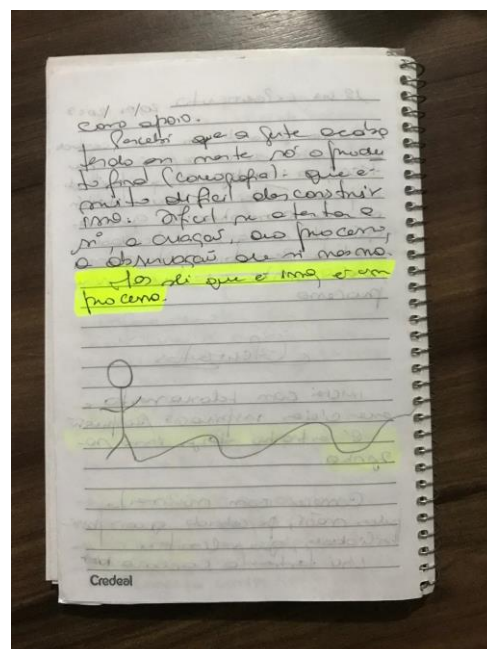 como apoio.
Percebi que a gente acaba
tendo em mente só o produ
to final (coreografia). que é
muito difícil desconstruir
isso. Difícil se atentar a
si, a criação, ao processo,
a observação de si mesmo.
Mas sei que é isso, é um
processo.
Credeal